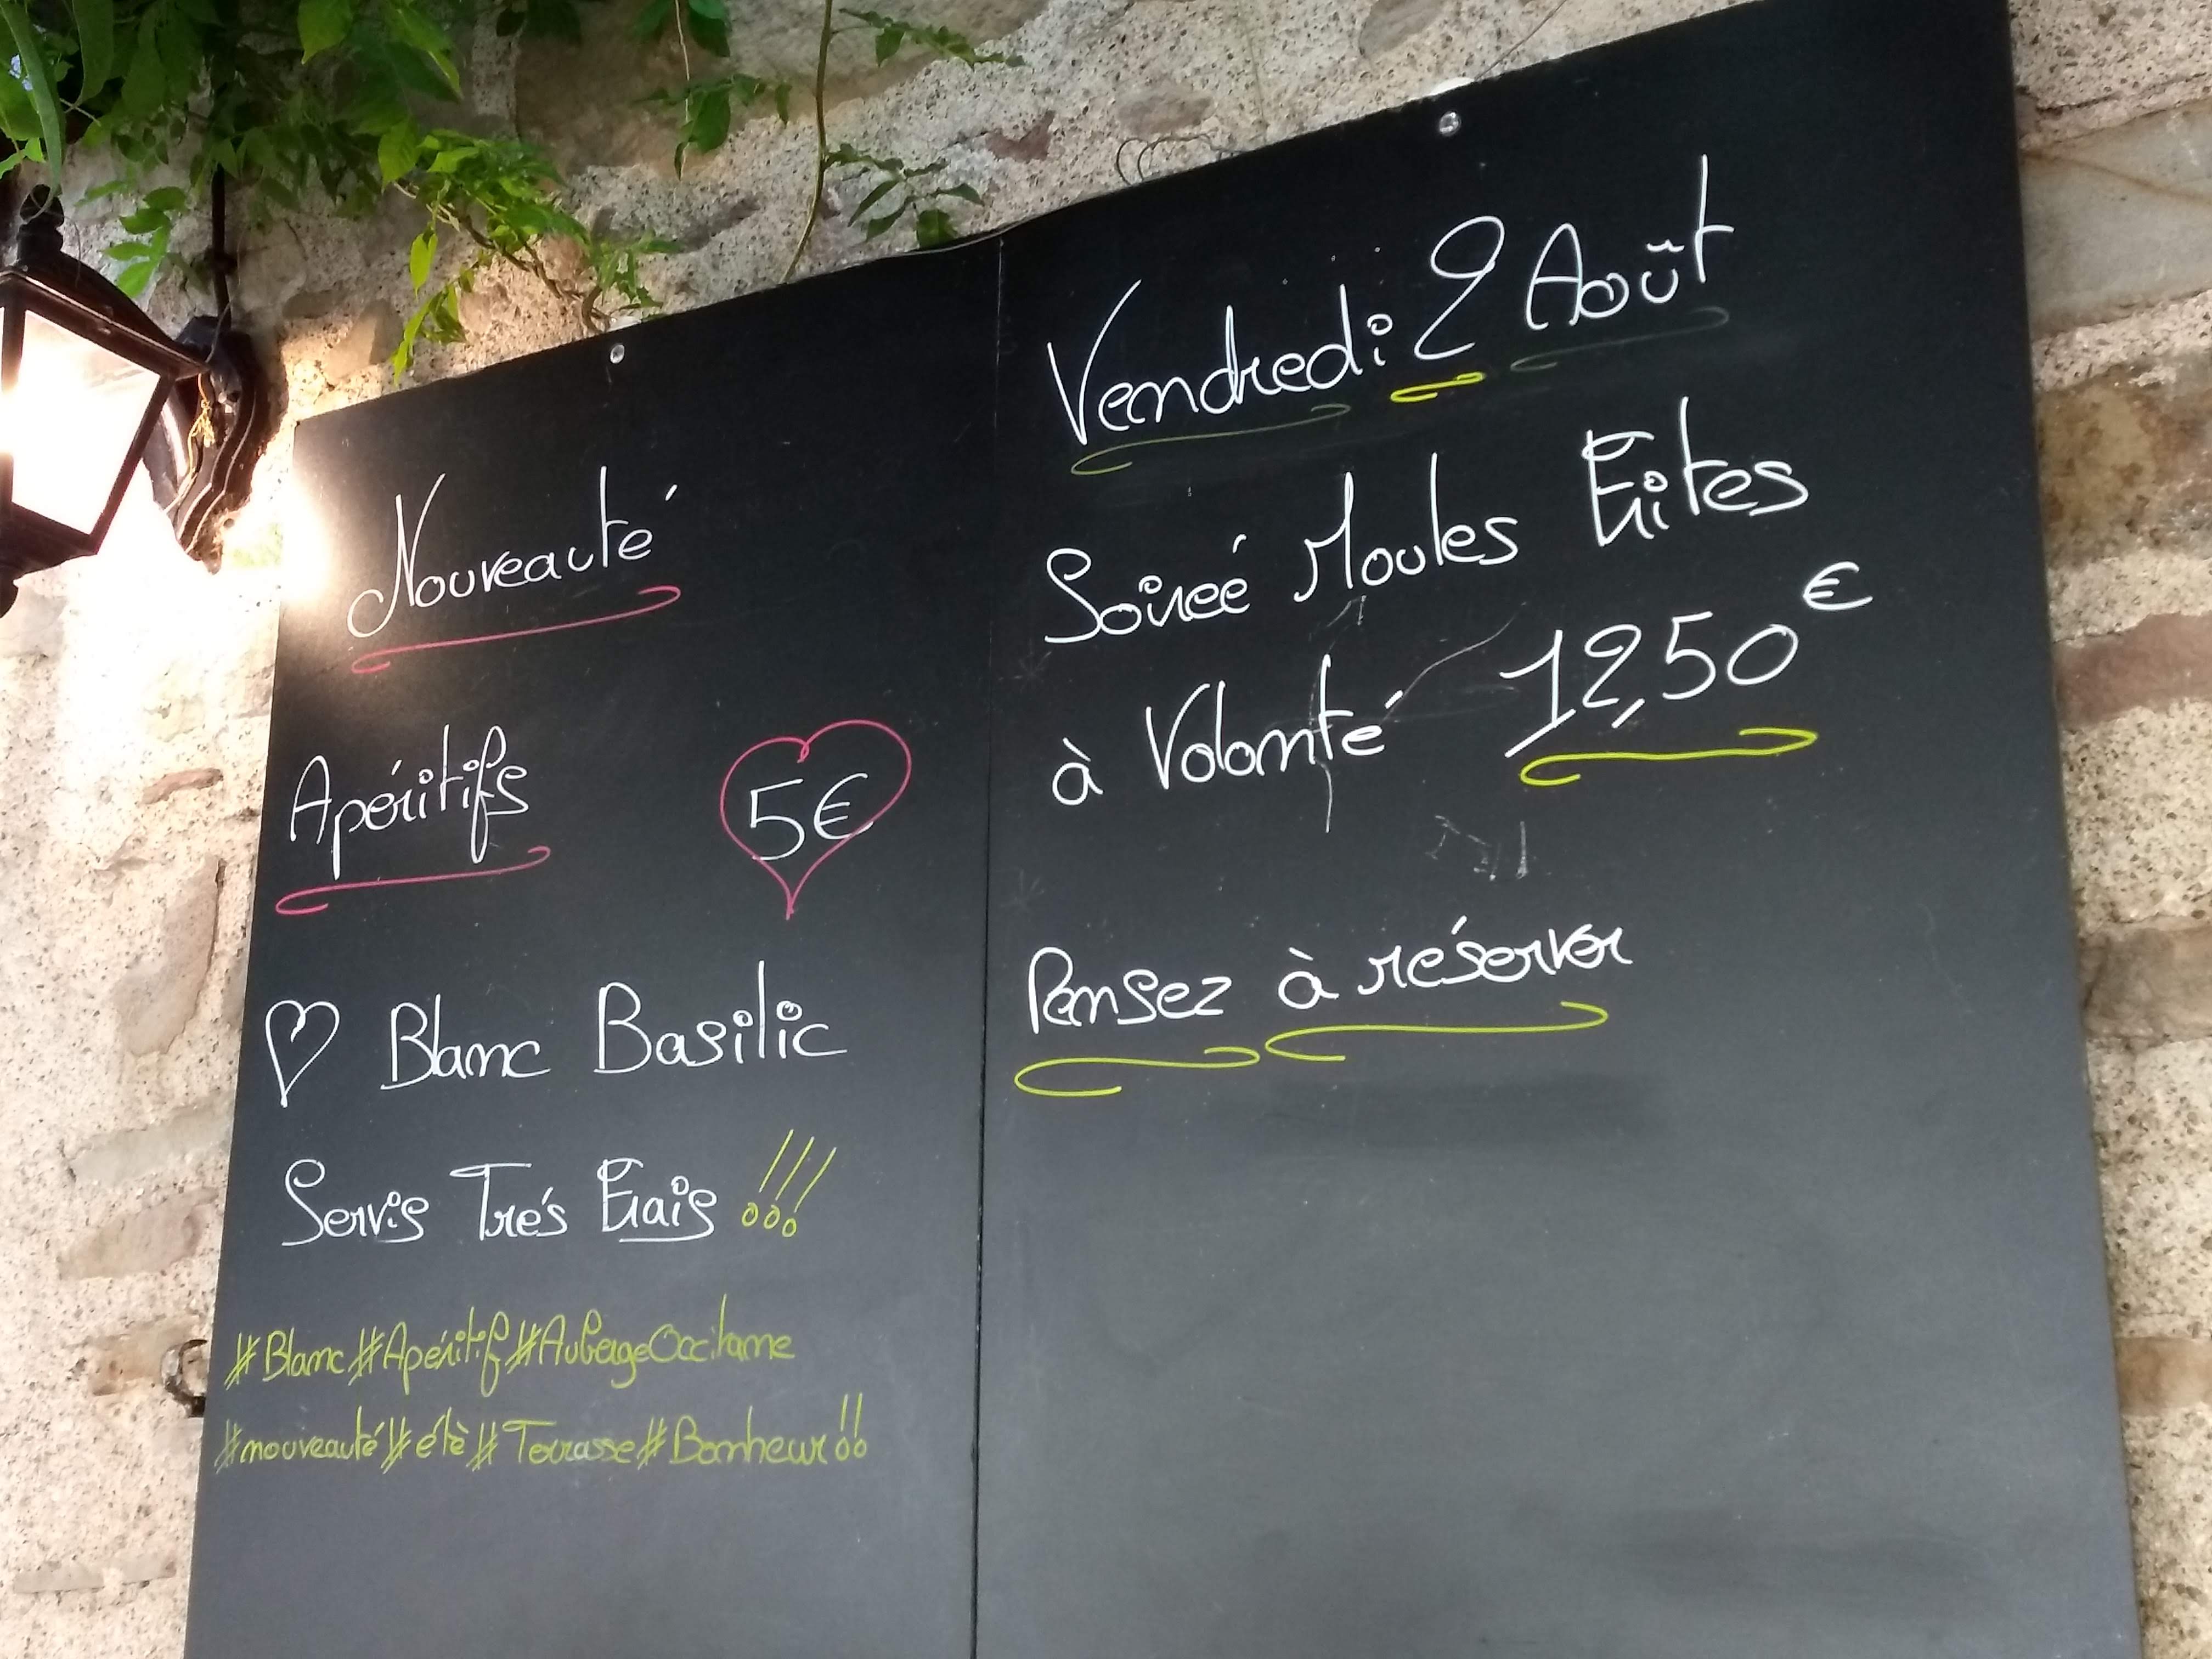 Nouveauté
Apéritifs 5€
Blanc Basilic
Servis Trés Frais !!!
#Blanc#Apéritif#AubergeOccitane
#nouveauté#été#Terrasse#Bonheur!!
Vendredi 2 Août
Soireé Moules Frites
à Volonté 12,50€
Pensez à réserver